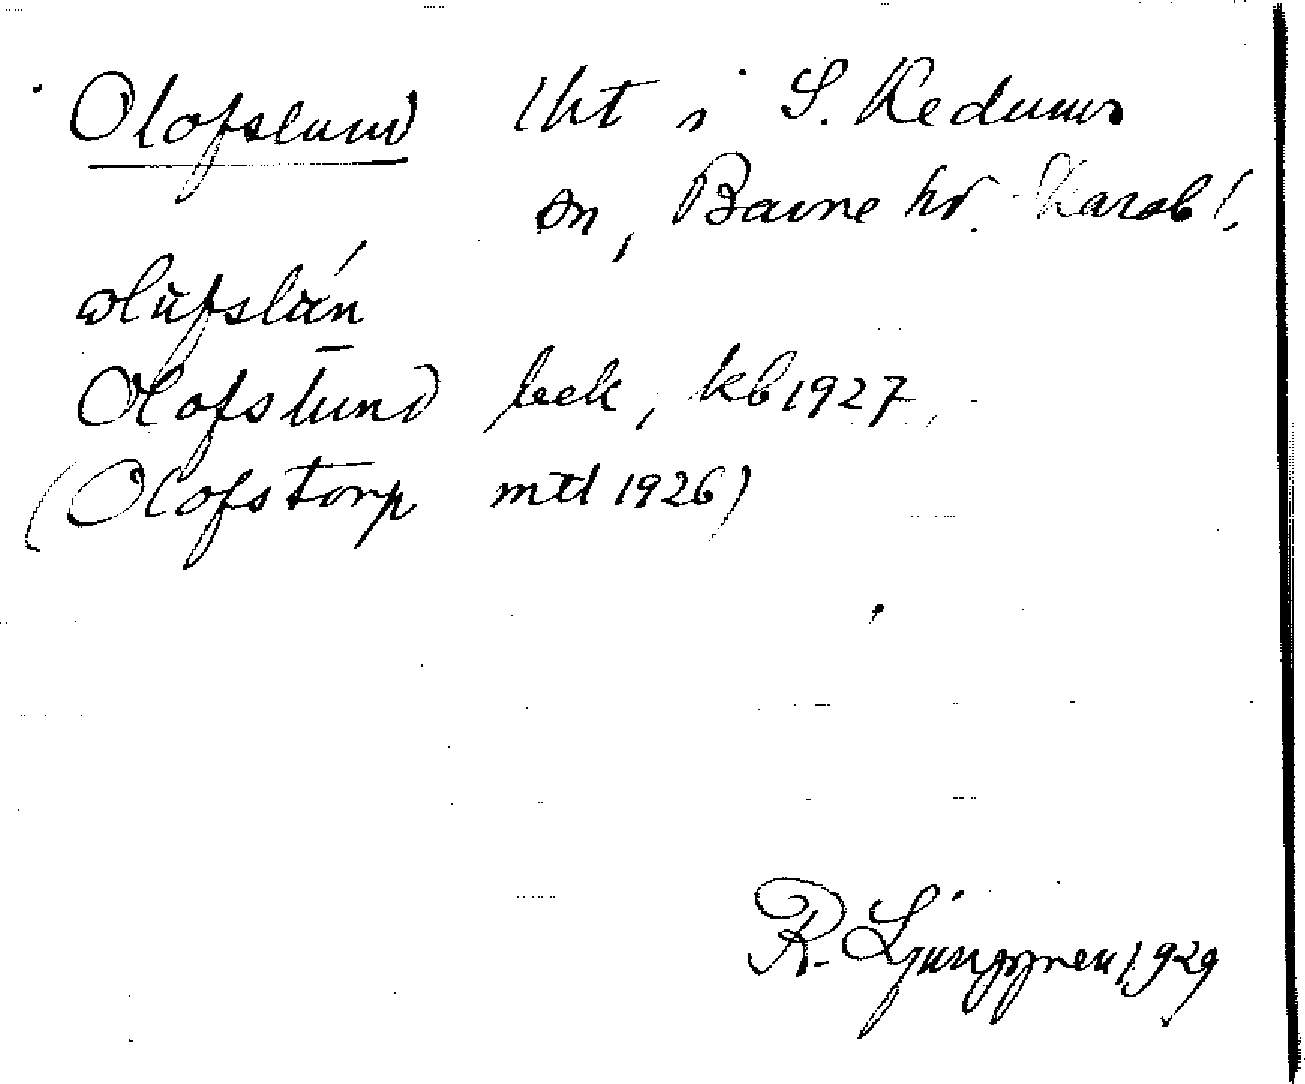 Olofslund lht i S. Kedums
sn, Barne hd. Skarab l.
Olofslund bek, kb 1927,
(Olofstorp mtl 1926)
R. Ljunggren 1929